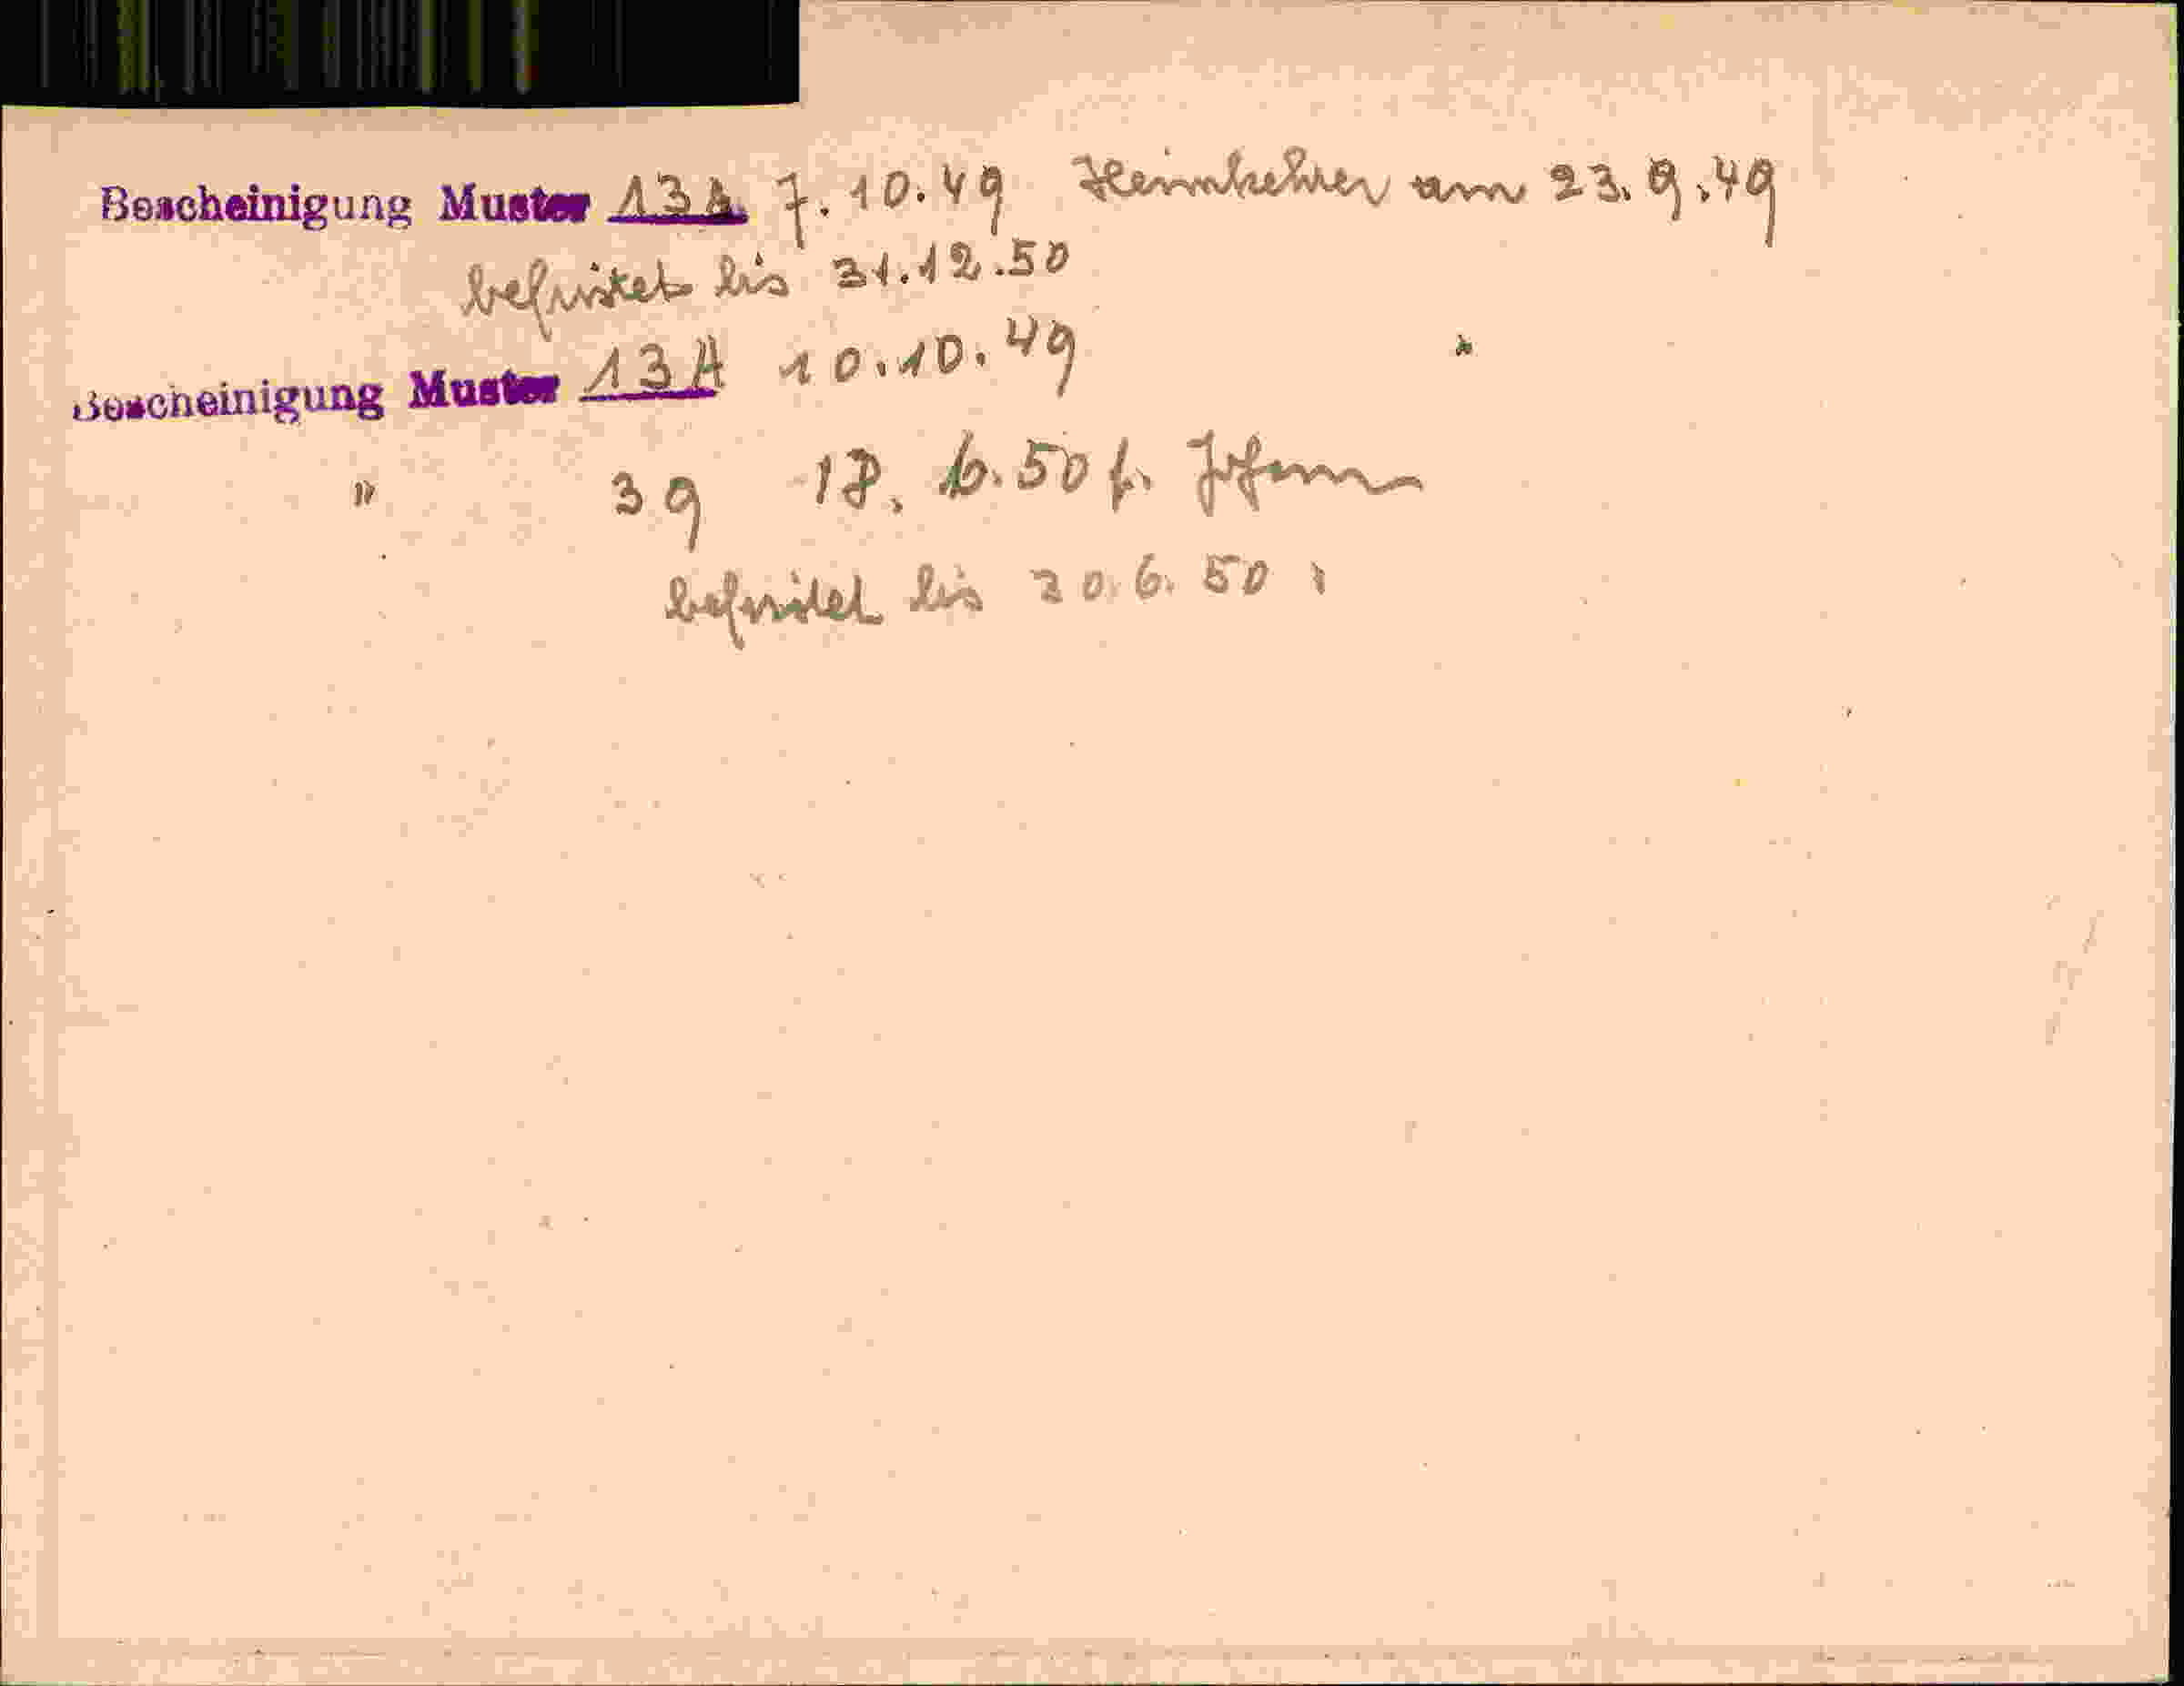 Bescheinigung Muster 13A 7.10.49 Heimkehrer am 23.9.49
befristet bis 31.12.50
Bescheinigung Muster 13A 10.10.49
" 39 17. 6.50 f.
befristet bis 30.6.50